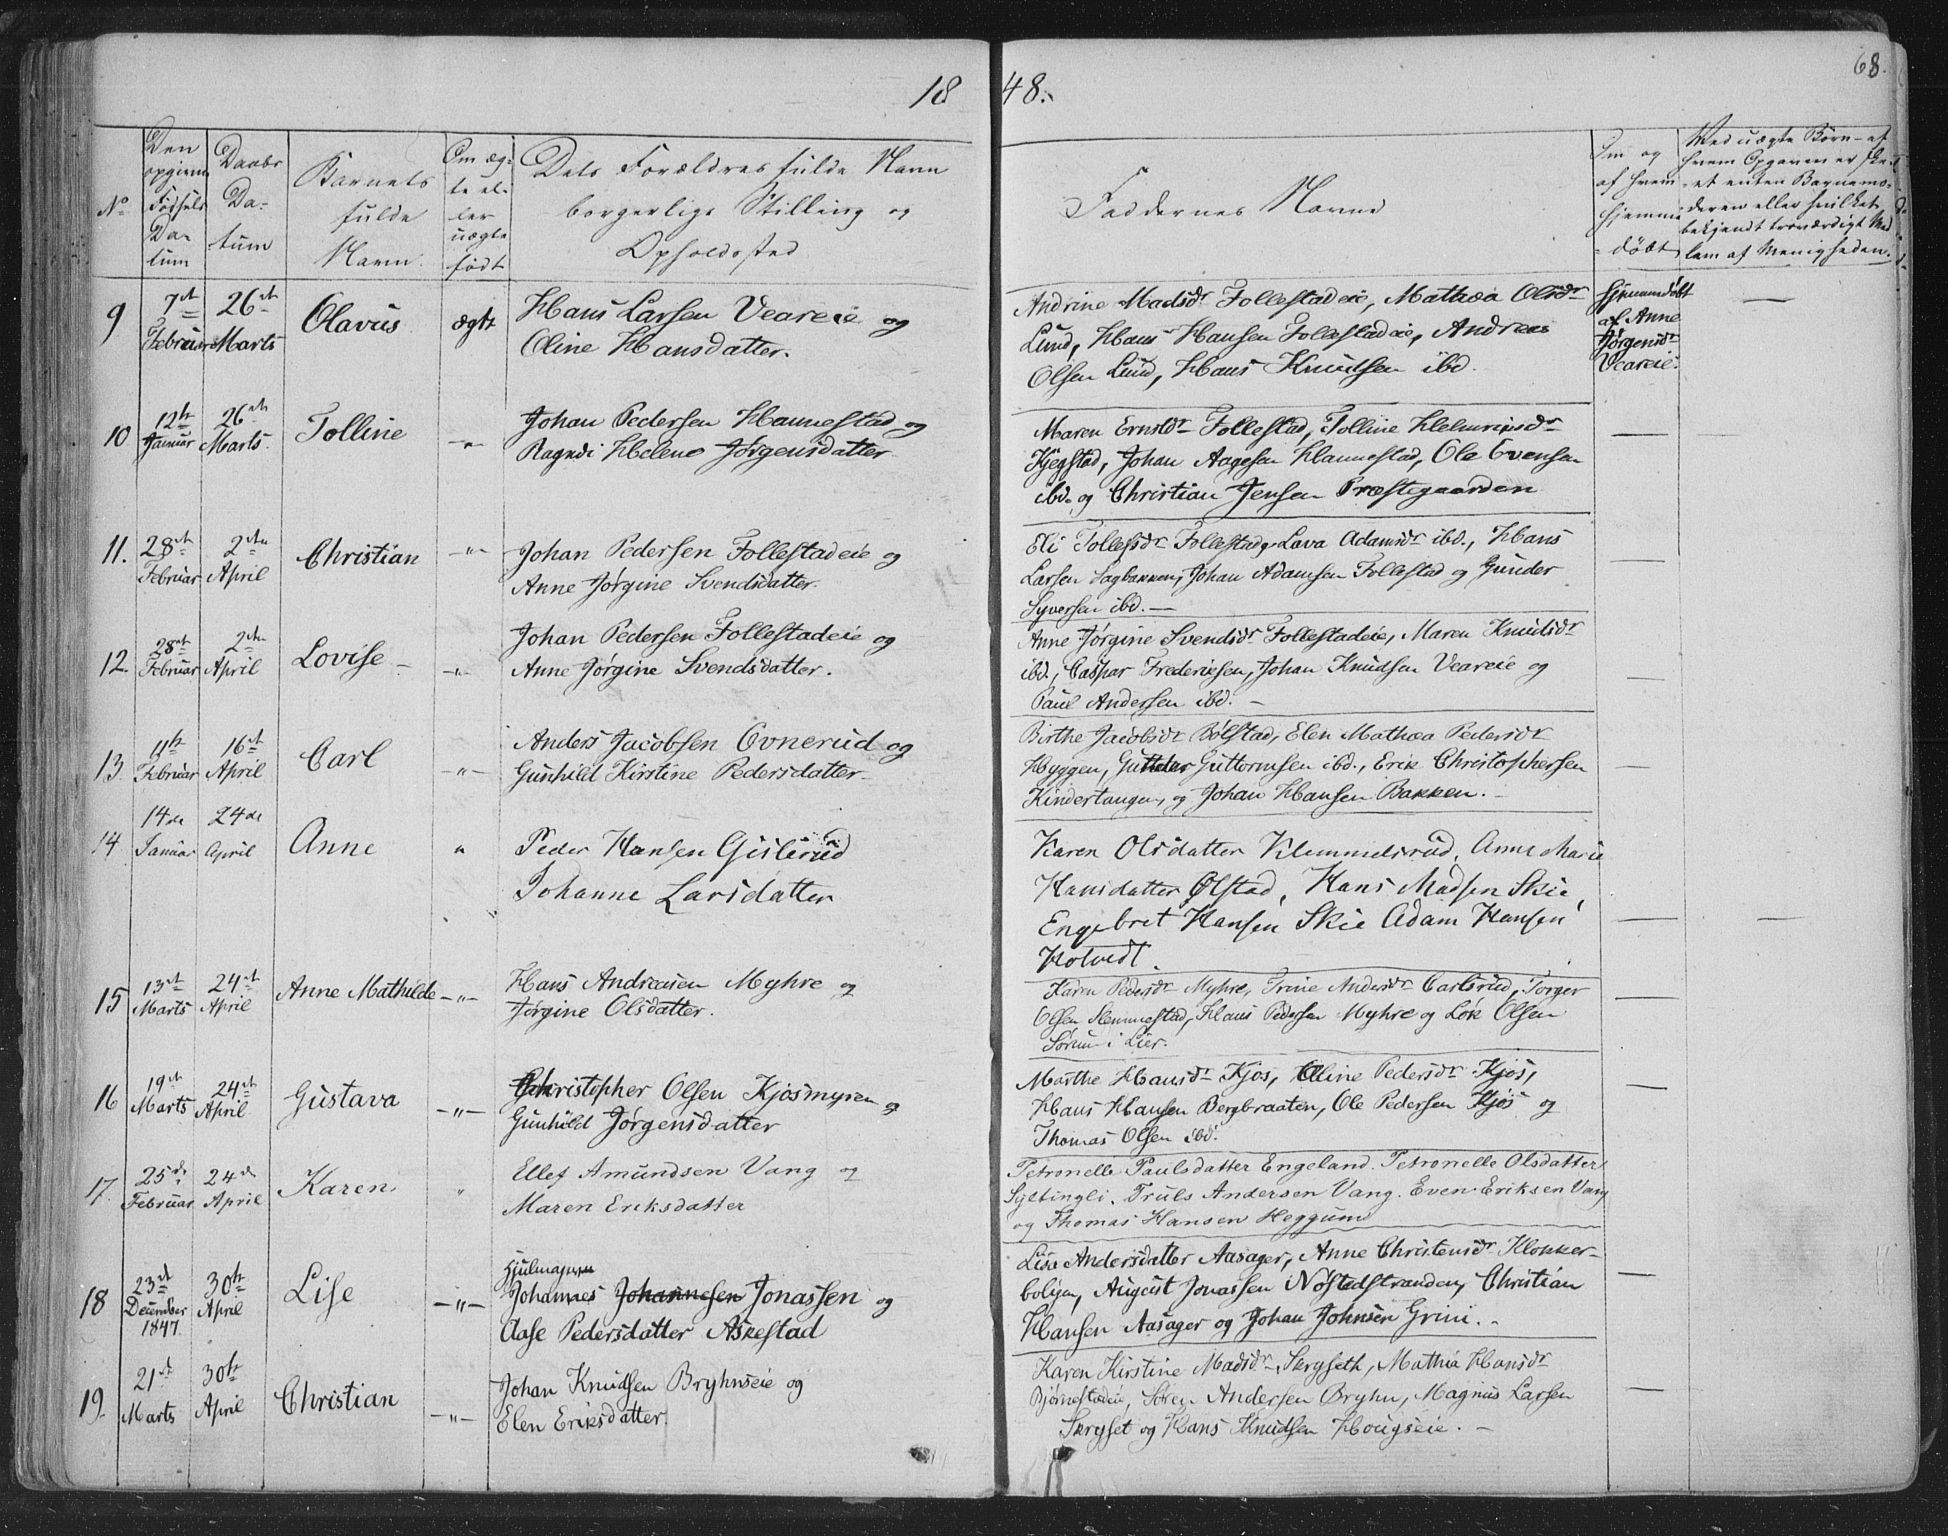 1848.
68.
No
Den opgivne Fødsels Datum
Daabs Datum
Barnets fulde Navn.
Om ægte eller uægte født
Dets Forældres fulde Navn borgerlige Stilling og Opholdssted
Faddernes Navne
Om og af hvem hjemmedøbt
Med uægte Børn af hvem Opgaven er skeet enten Barnemoderen eller hvilket bekjendt troværdigt Medlem af Menigheden.
9 7de Februar 26de Marts Olavus ægte
Hans Larsen Veareie og
Oline Hansdatter.
Andrine Madsdr Follestadeie, Mathea Olsdr
Lund, Hans Hansen Follestadeie, Andreas
Olsen Lund, Hans Knudsen ibd.
Hjemmedøbt
af Anne
Jørgensdr
Veareie.
—
10 12te Januar 26de Marts Tolline -"-
Johan Pedersen Hannestad og
Ragndi Helene Jørgensdatter
Maren Ernstdr Follestad, Tolline
Kjegstad, Johan Aagesen Hannestad, Ole Evensen
ibd. og Christian Jensen Præstegaarden
—
11. 28de Februar 2den April Christian -"-
Johan Pedersen Follestadeie og
Anne Jørgine Svendsdatter.
Eli Tollefsdr Follestad, Lava Adamsdr ibd., Hans
Larsen Sagbakken, Johan Adamsen Follestad og Gunder
Syversen ibd. —
—
12. 28de Februar 2den April Lovise -"-
Johan Pedersen Follestadeie og
Anne Jørgine Svendsdatter.
Anne Jørgine Svendsdr Follestadeie, Maren Knudsdr
ibd., Caspar Frederiksen, Johan Knudsen Veareie og
Paul Andersen ibd. —
—
13. 11te Februar 16de April Carl -"-
Anders Jacobsen Ovnerud og
Gunhild Kirstine Pedersdatter
Birthe Jacobsdr Bølstad, Elen Mathea Pedersdr
Hyggen, Guttormsen ibd., Erik Christophersen
Kindertangen, og Johan Hansen Bakken. —
—
14 14de Januar 24de April Anne "
Peder Hansen Gislerud
Johanne Larsdatter
Karen Olsdatter Klemmetsrud, Anne Marie
Hansdatter Ølstad, Hans Madsen Skie,
Engebret Hansen Skie Adam Hansen
Hotvedt.
— —
15 13de Marts 24de April Anne Mathilde -"-
Hans Andreasen Myhre og
Jørgine Olsdatter.
Karen Pedersdr Myhre, Trine Andersdr Carlsrud, Torger
Olsen Slemmestad, Hans Pedersen Myhre og Olsen
Sørum i Lier.
—
16 19de Marts 24de April Gustava -"-
Christopher Olsen Kjosmyren og
Gunhild Jørgensdatter
Marthe Hansdr Kjos, Oline Pedersdr Kjos,
Hans Hansen Bergbraaten, Ole Pedersen Kjøs og
Thomas Olsen ibd.
—
17. 25de Februar 24de April Karen "
Ellef Amundsen Vang og
Maren Eriksdatter
Petronelle Paulsdatter Engeland. Petronelle Olsdatter
Syltingli. Truls Andersen Vang. Even Eriksen Vang
og Thomas Hansen Heggum
18 23de December 1847 30te April Lise -"-
Hjulmager
Johannes Johannesen Jonassen og
Aase Pedersdatter Askestad
Lise Andersdatter Aasager, Anne Christensdr Klokker-
boligen, August Jonassen Nøstedstranden, Christian
Hansen Aasager og Johan Johnsen Grini. -
—
19. 21de Marts 30te April Christian -"-
Johan Knudsen Bryhnseie og
Elen Eriksdatter.
Karen Kirstine Madsdr Skryseth, Mathia Hansdr
Bjørnstadeie, Søren Andersen Bryhn, Magnus Larsen
Skryset og Hans Knudsen Hougseie. —
—